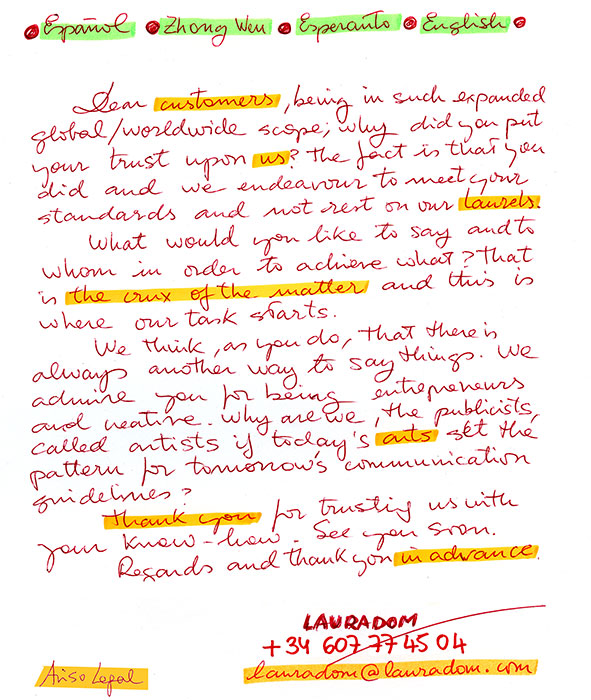 Español Zhong Wen Esperanto English
Dear customers, being in such expanded
global/worldwide scope, why did you put
your trust upon us? The fact is that you
did and we endeavour to meet your
standards and not rest on our laurels.
What would you like to say and to
whom in order to achieve what? That
is the crux of the matter and this is
where our task starts.
We think, as you do, that there is
always another way to say things. We
admire you for being entrepreneurs
and creative. Why are we, the publicists,
called artists if today's arts set the
pattern for tomorrow's communication
guidelines?
Thank you for trusting us with
your know-how. See you soon.
Regards and thank you in advance.
LAURADOM
+34 607 77 45 04
Aviso Legal
lauradom@lauradom.com